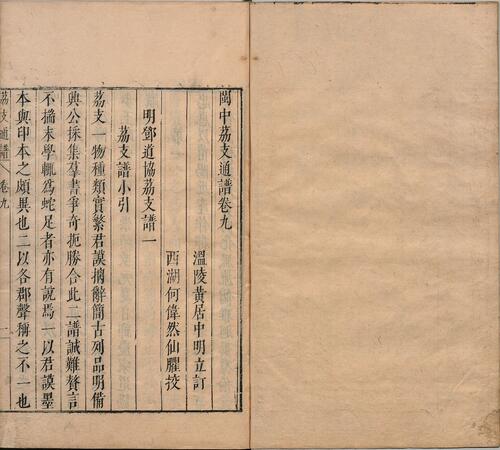 閩中荔支通譜卷九
溫陵黃居中明立訂
西湖何偉然仙臞挍
明鄧道協荔支譜一
荔支譜小引
荔支一物種類實繁君謨摛辭簡古列品明備
興公採集羣書爭奇扼勝合此二譜誠難贅言
不揣末學輒為蛇足者亦有說焉一以君謨墨
本與印本之頗異也二以各郡聲稱之不一也
荔支通譜 卷九 一